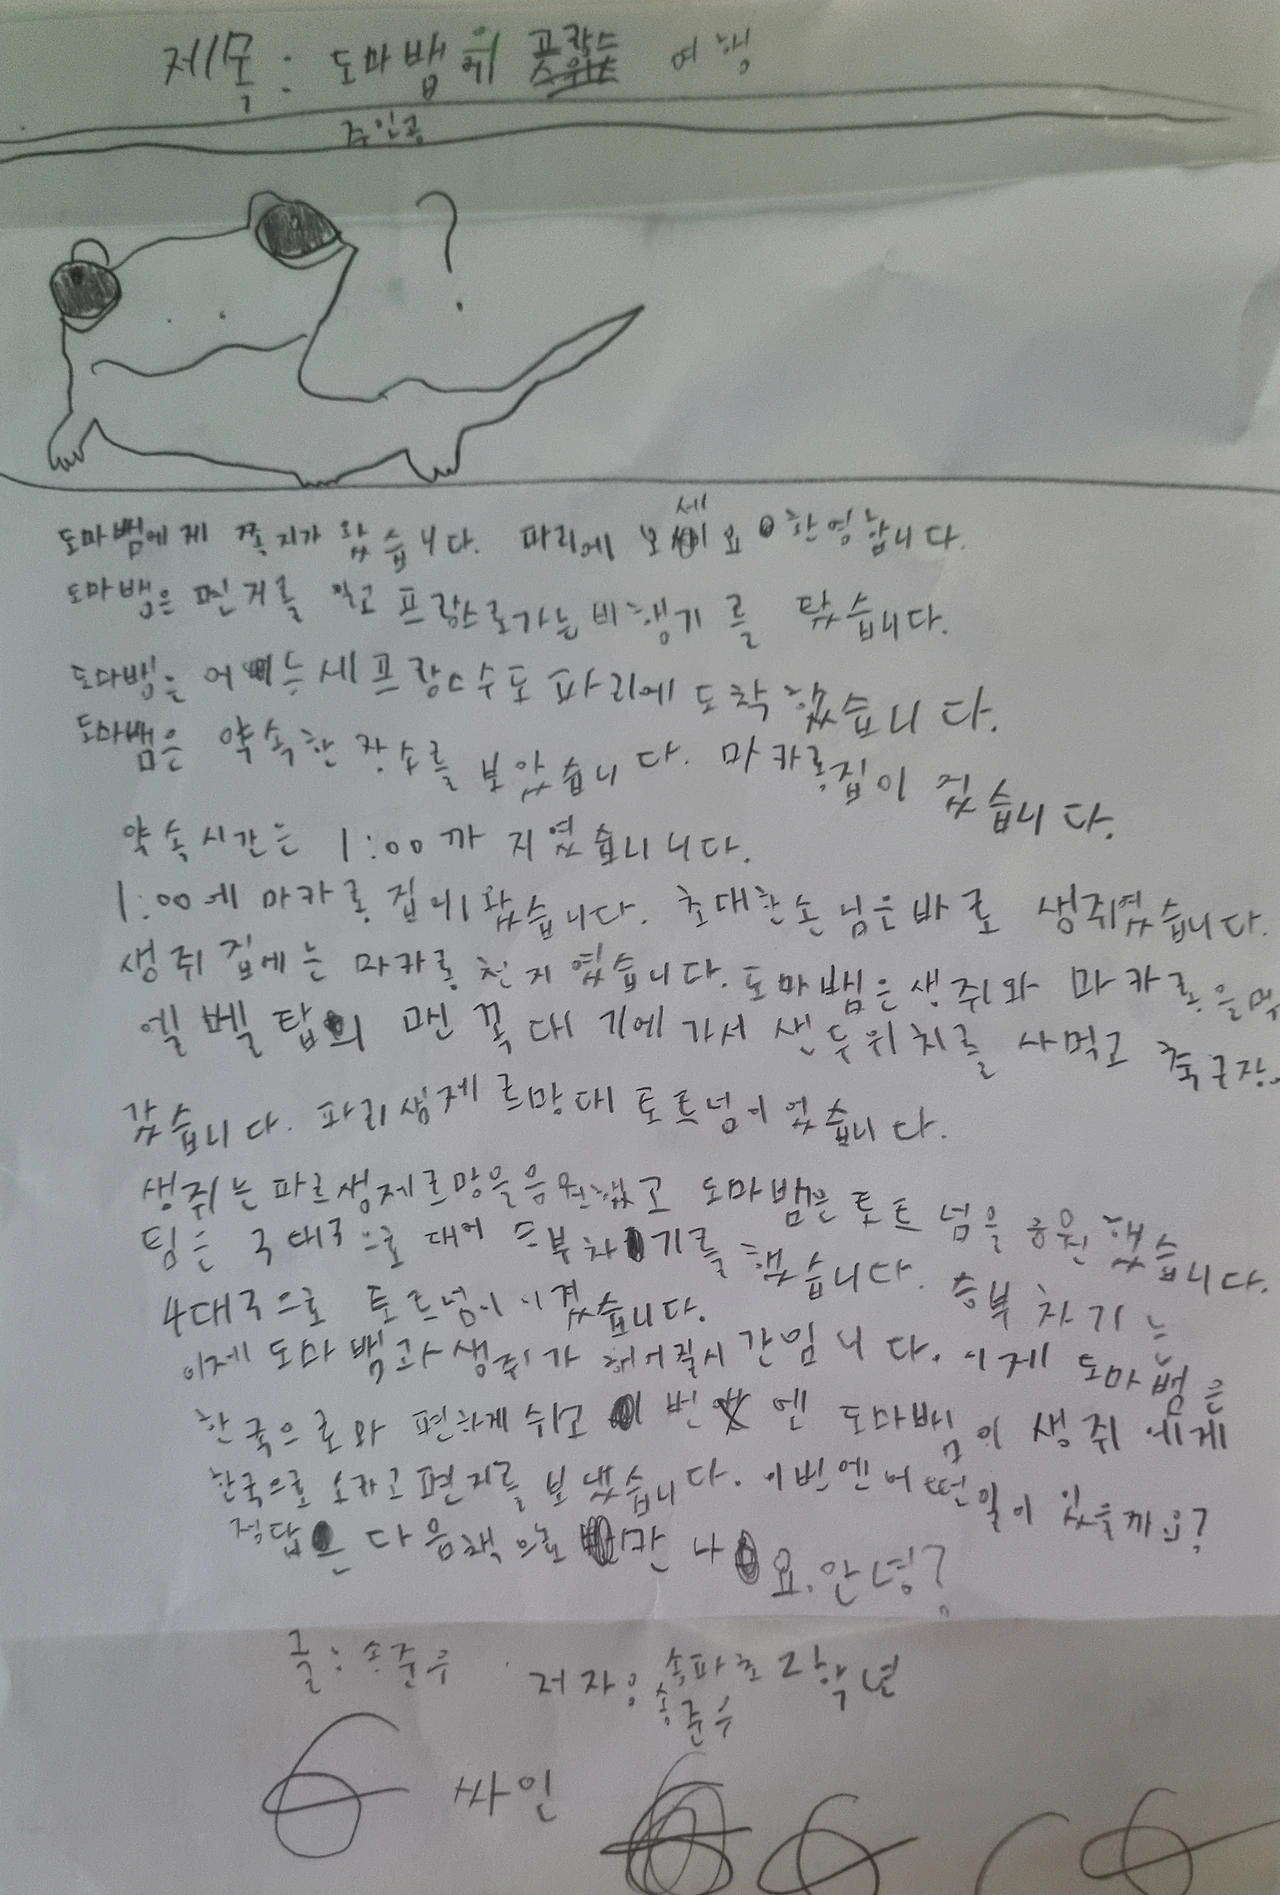 제목: 도마뱀의 프랑스 여행
주인공
?
도마뱀에게 쪽지가 왔습니다. 파리에 오세요 환영합니다.
도마뱀은 편지를 읽고 프랑스로가는 비행기를 탔습니다.
도마뱀은 어느세 프랑스수도 파리에 도착했습니다.
도마뱀은 약속한 장소를 보았습니다. 마카롱집이 있습니다.
약속시간는 1:00까지였습니니다.
1:00에 마카롱집에 왔습니다. 초대한손님은바로 생쥐였습니다.
생쥐집에는 마카롱 천지였습니다. 도마뱀은생쥐와 마카롱을먹
엘벨탑의 맨 꼭대기에가서 샌두위치를 사먹고 축구장
갔습니다. 파리생제르망대 토트넘이었습니다.
생쥐는파르생제르망을응원했고 도마뱀은토트넘을 응원했습니다.
팀는 국대국으로 대어 승부차기를했습니다. 승부차기는
4대국으로 토트넘이 이겼습니다.
이제 도마뱀과생쥐가 헤어질시간입니다. 이제 도마뱀은
한국으로와 편하게쉬고 이번엔 도마뱀이 생쥐에게
한국으로 오라고 편지를 보냈습니다. 이번엔어떤일이 있을까요?
정답은 다음책으로 만나요. 안녕?
글: 송준우 저자: 송파초2학년
송준우
싸인